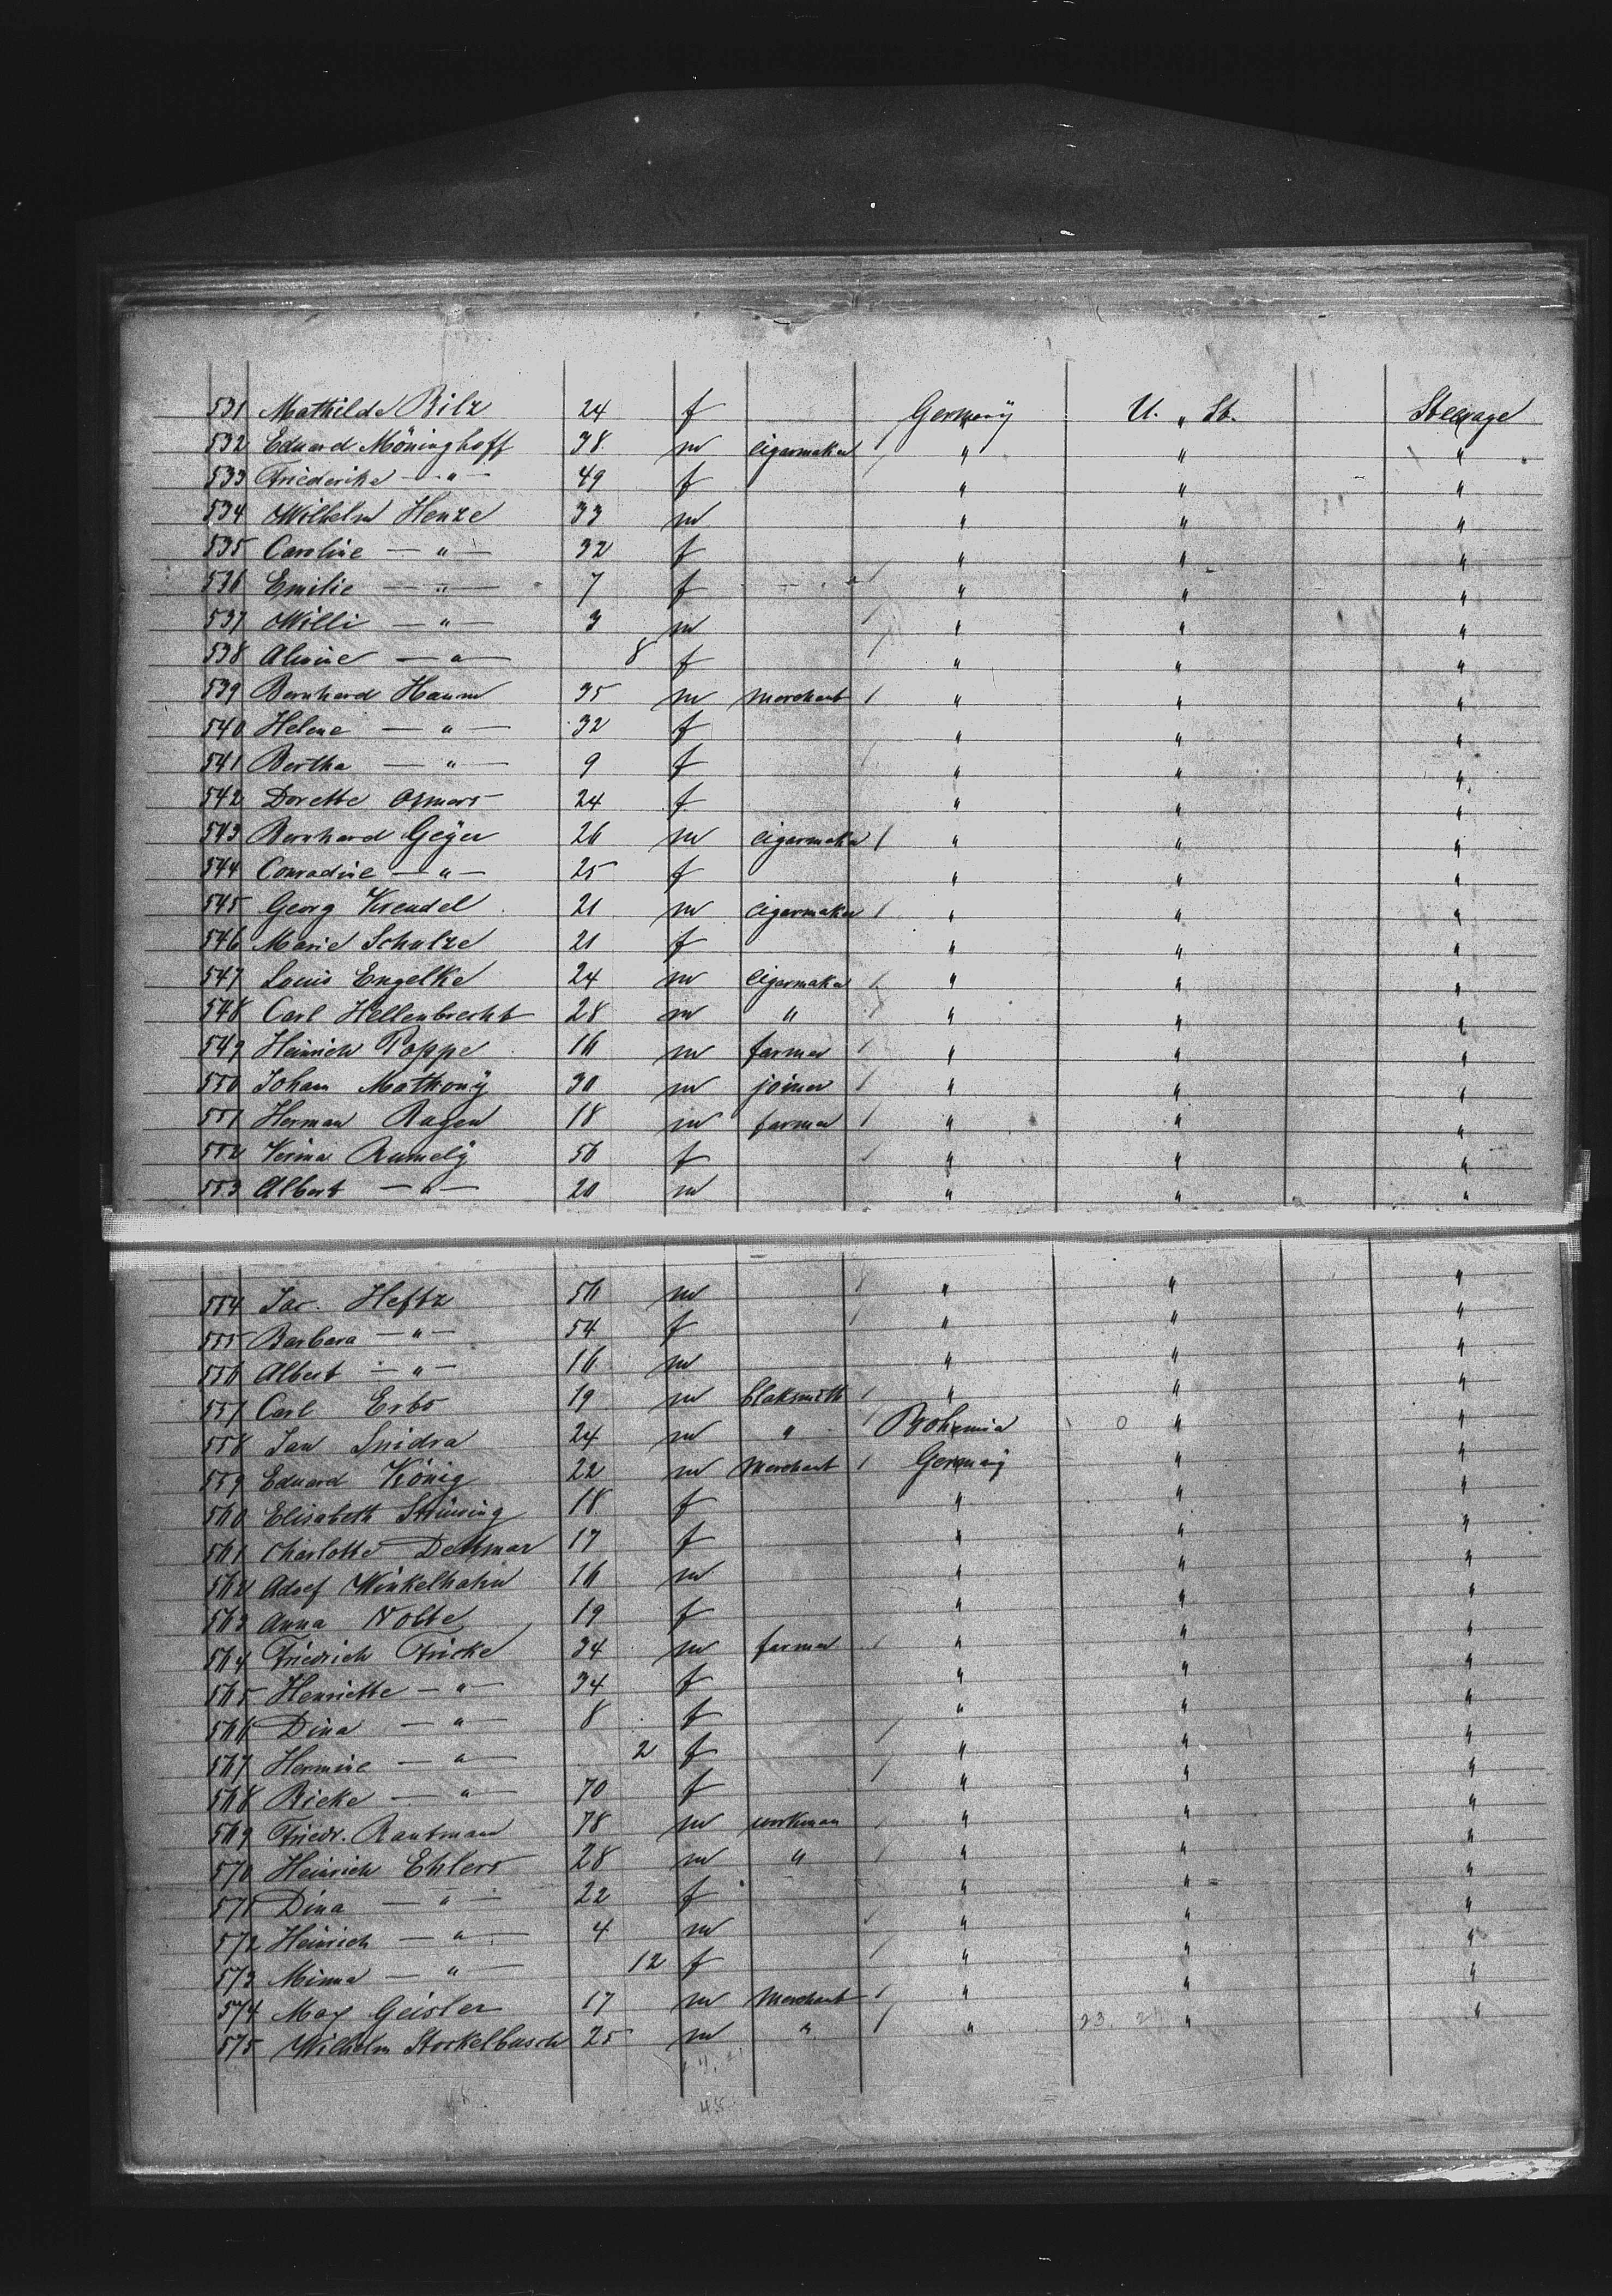 531 Mathilde Bilz 24 f Germany U. " St. Steerage
532 Eduard Möninghoff 38 m cigarmaker " " "
533 Friederike — " — 49 f " " "
534 Wilhelm Henze 33 m " " "
535 Caroline — " — 32 f " " "
536 Emilie — " — 7 f " " "
537 Willi — " — 3 m " " "
538 Alwine — " — 8 f " " "
539 Bernhard Hamm 35 m merchant " " "
540 Helene — " — 32 f " " "
541 Bertha — " — 9 f " " "
542 Dorette Osmers 24 f " " "
543 Bernhard Geÿer 26 m cigarmaker " " "
544 Conradine — " — 25 f " " "
545 Georg Krendel 21 m cigarmaker " " "
546 Marie Schulze 21 f " " "
547 Louis Engelke 24 m cigarmaker " " "
548 Carl Hellenbrecht 28 m " " " "
549 Heinrich Poppe 16 m farmer " " "
550 Joham Mathonÿ 30 m joiner " " "
551 Herman Ragen 18 m farmer " " "
552 Verina Rumelÿ 56 f " " "
553 Albert — " — 20 m " " "
554 Jac. Heftz 56 m " " "
555 Barbara — " — 54 f " " "
556 Albert — " — 16 m " " "
557 Carl Erbs 19 m blaksmith " " "
558 Jan Snidra 24 m " Bohemia " "
559 Eduard König 22 m merchant Germany " "
560 Elisabeth Strüwing 18 f " " "
561 Charlotte Dettmar 17 f " " "
562 Adolf Winkelhahn 16 m " " "
563 Anna Nolte 19 f " " "
564 Friedrich Fricke 34 m farmer " " "
565 Henriette — " — 34 f " " "
566 Dina — " — 8 f " " "
567 Hermine — " — 2 f " " "
568 Ricke — " — 70 f " " "
569 Friedr. Rautman 78 m workman " " "
570 Heinrich Ehlers 28 m " " " "
571 Dina — " — 22 f " " "
572 Heinrich — " — 4 m " " "
573 Minna — " — 12 f " " "
574 Max Geisler 17 m merchant " " "
575 Wilhelm Stockelbusch 25 m " " " "